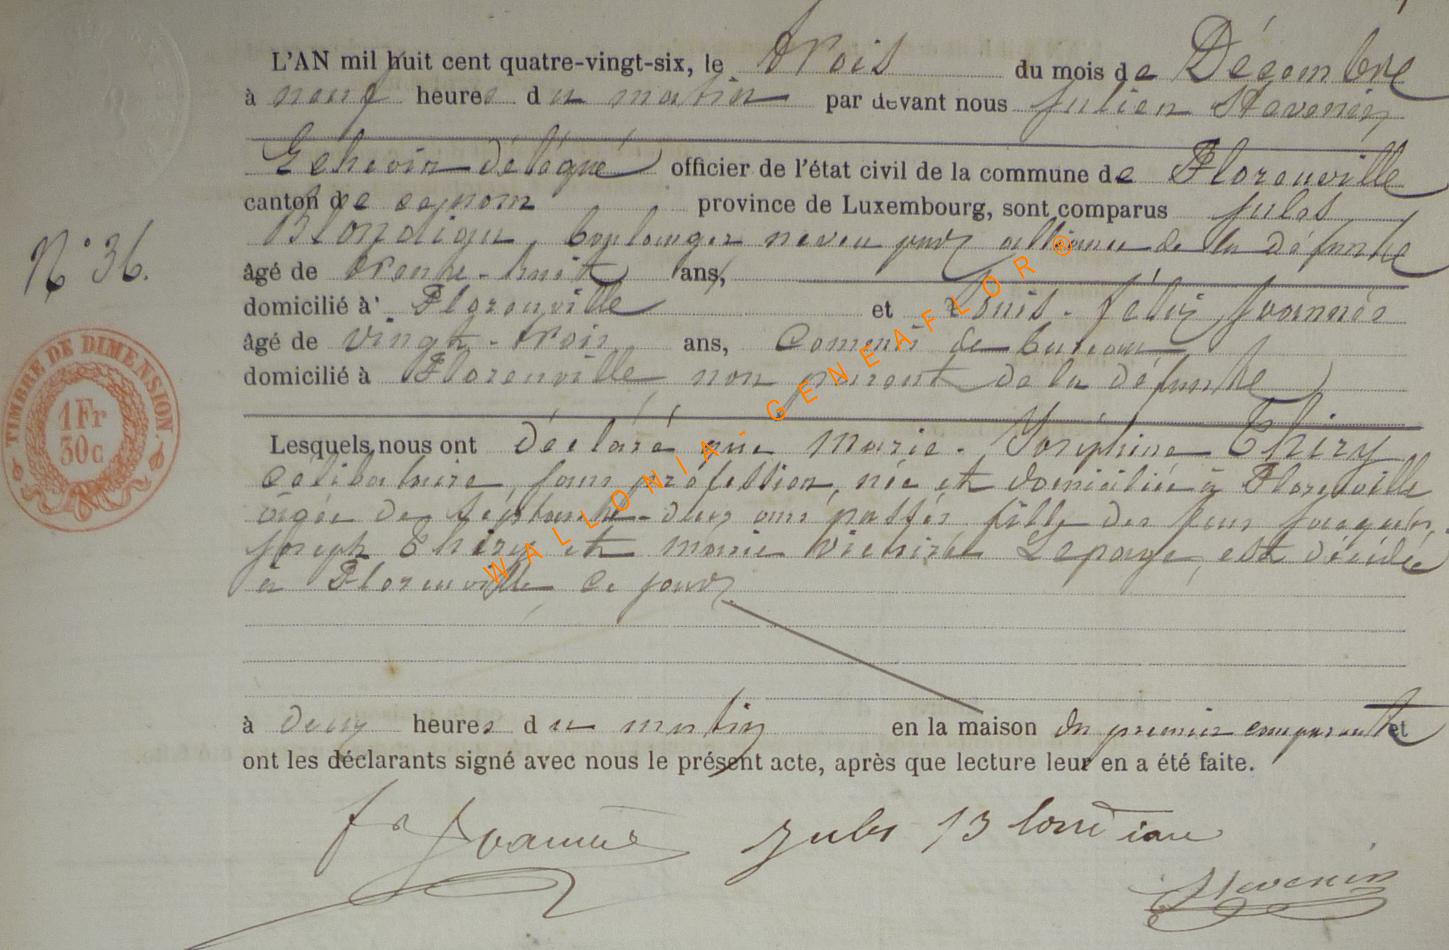 L'AN mil huit cent quatre-vingt-six, le trois du mois de Décembre
à neuf heures du matin par devant nous Julien Stevenin
Echevin délégué officier de l'état civil de la commune de Florenville
canton de ce nom province de Luxembourg, sont comparus Jules
Blondiau, boulanger neveu par alliance de la défunte
N° 36.
âgé de trente-huit ans,
domicilié à Florenville et Louis-Félix
âgé de vingt-trois ans, Commis de bureau
domicilié à Florenville non parent de la défunte
TIMBRE DE DIMENSION.
1Fr
30c
Lesquels nous ont déclaré que Marie-Joséphine Thiry
célibataire, sans profession, née et domiciliée à Florenville
âgée de septante-deux ans passés fille des feus Jacques
Joseph Thiry et Marie Lepage, est décédée
à Florenville ce jour
à deux heures du matin en la maison du premier comparant et
ont les déclarants signé avec nous le présent acte, après que lecture leur en a été faite.
Jules Blondiau
Stevenin
WALLONIA - GENEAFLOR ®